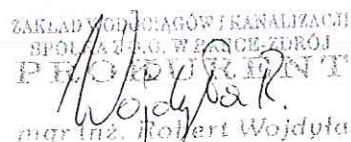 ZAKŁAD WODOCIĄGÓW I KANALIZACJI
SPÓŁKA Z O.O. W RABCE-ZDRÓJ
PROKURENT
Wojdyła R.
mgr inż. Robert Wojdyła